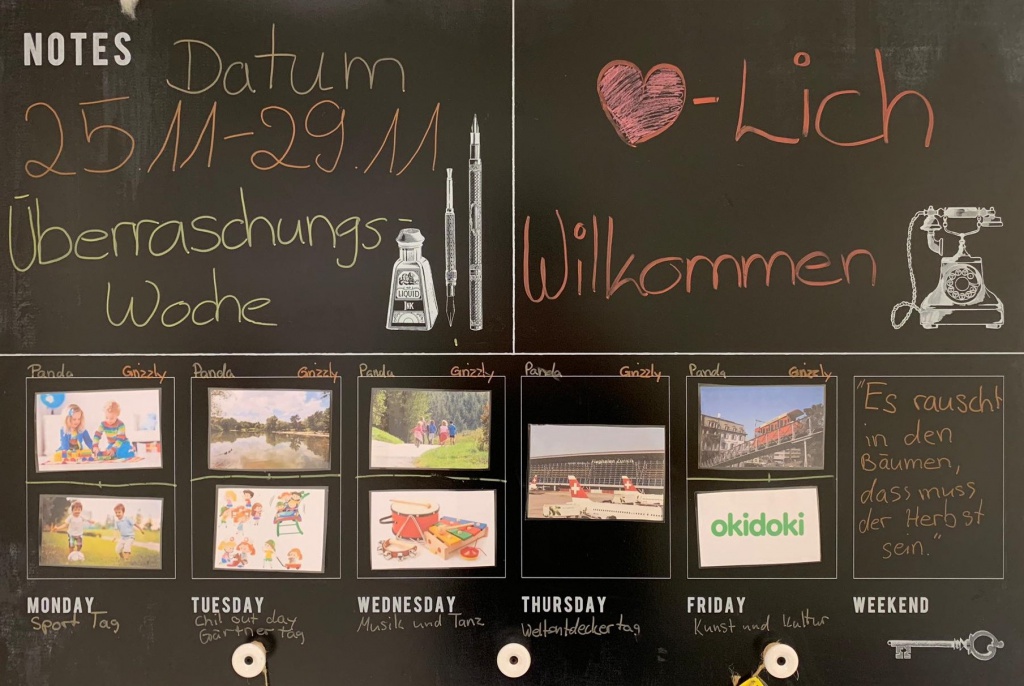 NOTES
Datum
25.11-29.11
Überraschungs-
Woche
LIQUID
INK
-Lich
Willkommen
Panda Grizzly
Panda Grizzly
Panda Grizzly
Panda Grizzly
Panda Grizzly
Flughafen Zürich
okidoki
"Es rauscht
in den
Bäumen,
dass muss
der Herbst
sein."
MONDAY
Sport Tag
TUESDAY
Chil out day
Gärtnertag
WEDNESDAY
Musik und Tanz
THURSDAY
Weltentdeckertag
FRIDAY
Kunst und Kultur
WEEKEND